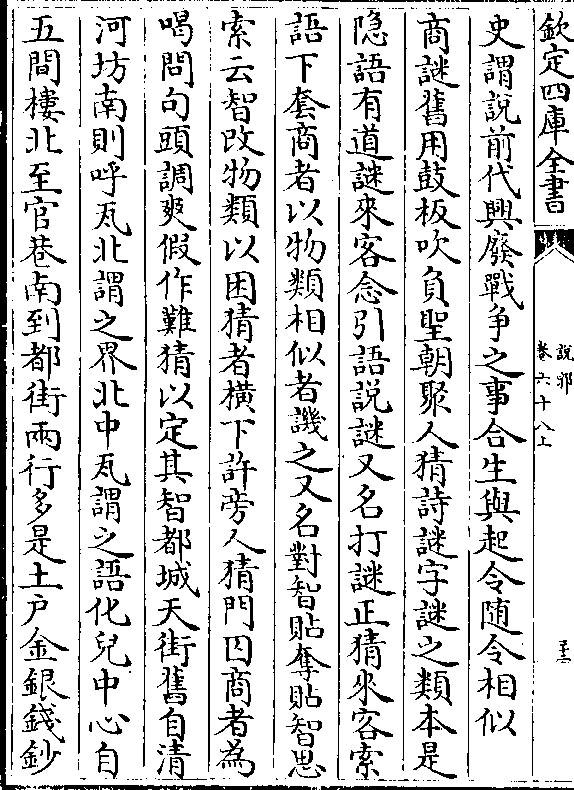 欽定四庫全書
說郛
卷六十八上
史謂說前代興廢戰争之事合生與起令随令相似
商謎舊用鼓板吹負聖朝聚人猜詩謎字謎之類本是
隐語有道謎來客念引語説謎又名打謎正猜來客索
語下套商者以物類相似者譏之又名對智貼奪貼智思
索云智改物類以困猜者横下許旁人猜門因商者為
喝問句頭調爽假作難猜以定其智都城天街舊自清
河坊南則呼瓦北謂之界北中瓦謂之語化兒中心自
五間樓北至官巷南到都街兩行多是土户金銀錢鈔